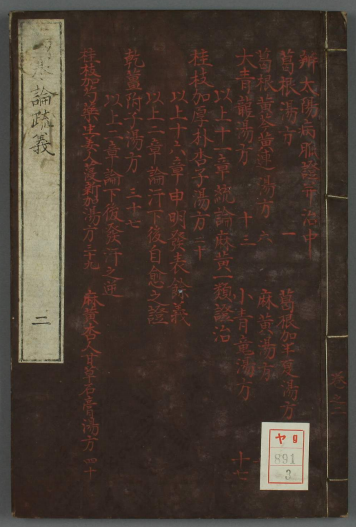 辨太陽病脈證并治中
葛根湯方 一 葛根加半夏湯方
葛根黃芩黃連湯方 六 麻黃湯方
大青龍湯方 十三 小青竜湯方 十七
以上十一章統論麻黃一類證治
桂枝加厚朴杏子湯方 二十
以上十六章申明發表餘義
以上二章論汗下後自愈之證
乾薑附子湯方 三十七
以上二章論下後發汗之逆
桂枝加芍藥生姜人參新加湯方 三十九 麻黃杏人甘草石膏湯方 四十
論疏義
二
卷之二
ヤ09
891
3